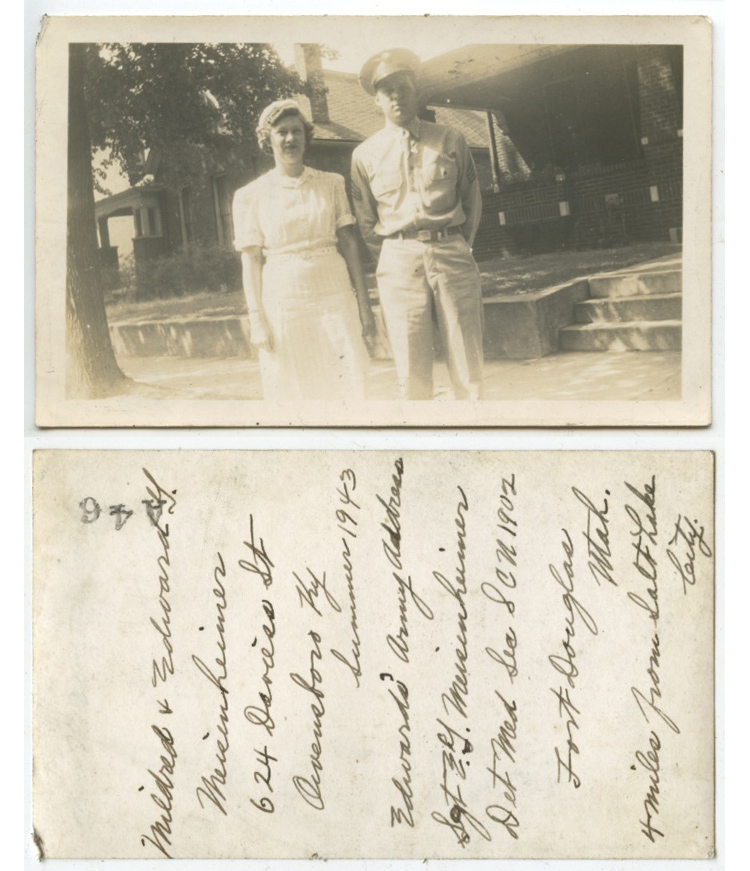 Mildred & Edward G.
Meisenheimer
624 Daviess St
Owensboro Ky
Summer 1943
Edwards' Army Address
Sgt E.G. Meisenheimer
Det Med Sec SCU 1902
Fort Douglas
Utah.
4 miles from Salt Lake
City.